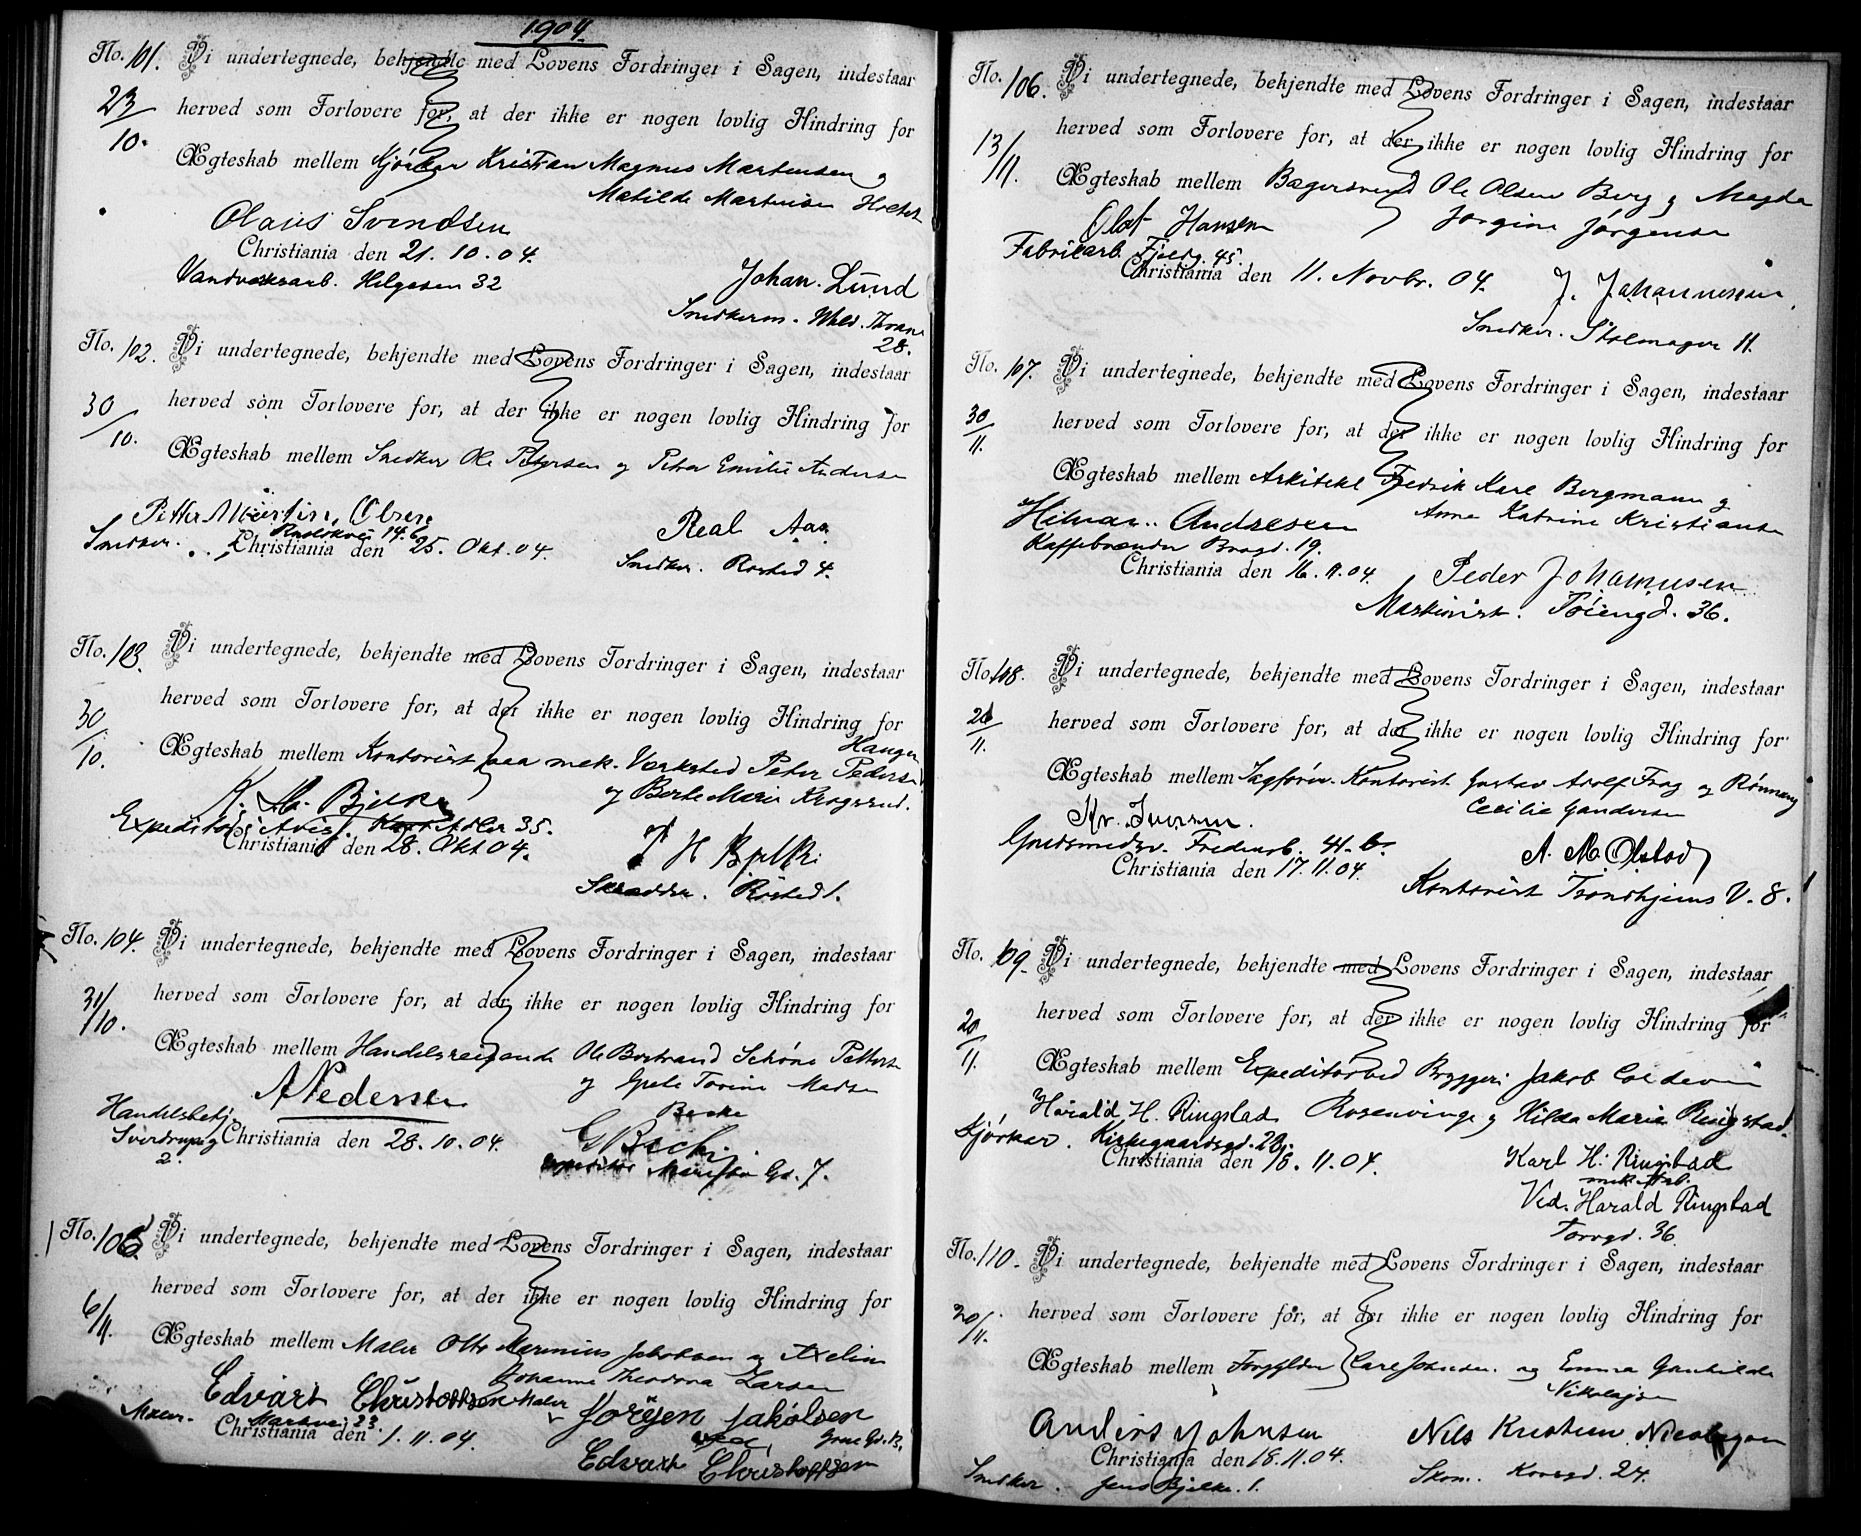 1904.
No. 101. Vi undertegnede, bekjendte med Lovens Fordringer i Sagen, indestaar
23/10. herved som Forlovere for, at der ikke er nogen lovlig Hindring for
Ægteskab mellem Kjørekar Kristian Magnus Martensen og
Matilde Martensen Holtet
Olaus Svendsen
Christiania den 21. 10. 04.
Vandværksarb. Helgesen 32
Johan. Lund
Snedkerm. Wald. Thranes
28.
No. 102. Vi undertegnede, bekjendte med Lovens Fordringer i Sagen, indestaar
30/10. herved som Forlovere for, at der ikke er nogen lovlig Hindring for
Ægteskab mellem Snedker Ole Petersen og Petra Emilie Andersen
Petter Martin Olsen
Snedker.
Christiania den 25. Okt. 04.
Real Aas
Snedker. Rosted 4.
No. 103. Vi undertegnede, bekjendte med Lovens Fordringer i Sagen, indestaar
30/10. herved som Forlovere for, at der ikke er nogen lovlig Hindring for
Ægteskab mellem Kontorist paa mek. Værksted Peter Pedersen Haugen
og Berte Marie Krogsrud.
K. M. Bjelke
Expeditør i Avis. Kort Adler 35.
Christiania den 28. Okt 04.
H Bjelke
Skrædder. Rosted 1.
No. 104. Vi undertegnede, bekjendte med Lovens Fordringer i Sagen, indestaar
31/10. herved som Forlovere for, at der ikke er nogen lovlig Hindring for
Ægteskab mellem Handelsreisende Ole Bertrand Schøne Pettersen
og Grete Torine Madsen
A Pedersen
Becke
Handelsbetj
Sverdrupsg
2.
Christiania den 28. 10. 04.
G Beck.
Expeditør Gd. 7.
No. 105 Vi undertegnede, bekjendte med Lovens Fordringer i Sagen, indestaar
6/11. herved som Forlovere for, at der ikke er nogen lovlig Hindring for
Ægteskab mellem Maler Otto Marinius Jakobsen og Axeline
Johanne Theodora Larsen
Edvart Christoffersen Maler
Jørgen Jakobsen
Maler. Markvei 23.
Christiania den 1. 11. 04.
ved
Edvart Christoffersen
No. 106. Vi undertegnede, bekjendte med Lovens Fordringer i Sagen, indestaar
13/11. herved som Forlovere for, at der ikke er nogen lovlig Hindring for
Ægteskab mellem Bagersvend Ole Olsen Berg og Magda
Jørgine Jørgensen
Olaf Hansen
Fabrikarb. Fjeldg. 45.
Christiania den 11. Novbr. 04.
J. Johannessen
Snedker. Stolmager 11.
No. 107. Vi undertegnede, bekjendte med Lovens Fordringer i Sagen, indestaar
30/11. herved som Forlovere for, at der ikke er nogen lovlig Hindring for
Ægteskab mellem Arkitekt Fredrik Karl Bergmann og
Anna Katrine Kristiansen
Hilmar Andresen
Kaffebrænder Bragd. 19.
Christiania den 16. 11. 04.
Peder Johannesen
Maskinist. Tøiengd. 36.
No. 108. Vi undertegnede, bekjendte med Lovens Fordringer i Sagen, indestaar
20/11. herved som Forlovere for, at der ikke er nogen lovlig Hindring for
Ægteskab mellem Sagførerkontorist Gustav Adolf Frag og Rønnaug
Cecilie Gundersen
Kr. Iversen.
Guldsmedsv. Fredensb. 41. b.
Christiania den 17. 11. 04.
A. M. Olstad
Kontorist Trondhjems V. 8.
No. 109. Vi undertegnede, bekjendte med Lovens Fordringer i Sagen, indestaar
20/11. herved som Forlovere for, at der ikke er nogen lovlig Hindring for
Ægteskab mellem Expeditør ved Bryggeri Jakob Coldevin
Rosenvinge og Hilda Maria Ringstad.
Harald H. Ringstad
Kjørekar. Kirkegaardsgd. 20.
Christiania den 18. 11. 04.
Karl H. Ringstad
mek. Arb.
Ved. Harald Ringstad
Torvgd. 36.
No. 110. Vi undertegnede, bekjendte med Lovens Fordringer i Sagen, indestaar
20/11. herved som Forlovere for, at der ikke er nogen lovlig Hindring for
Ægteskab mellem Forgylder Carl Johnsen og Emma Gunhilda
Nikolajsen
Anders Johnsen
Christiania den 18. 11. 04.
Snedker. Jens Bjelke. 1.
Nils Kristian Nicolaysen
Skom. Korsgd. 24.